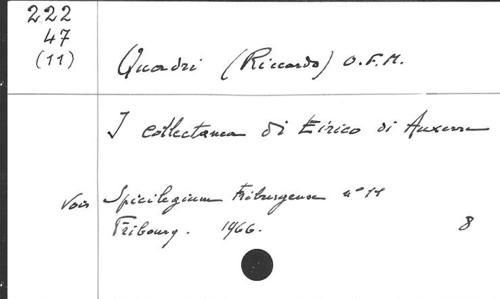 222
47
(11)
Quadri (Riccardo) O.F.M.
I collectanea di Eirico di Auxerre
Voir Spicilegium Friburgense n° 11
Fribourg. 1966. 8